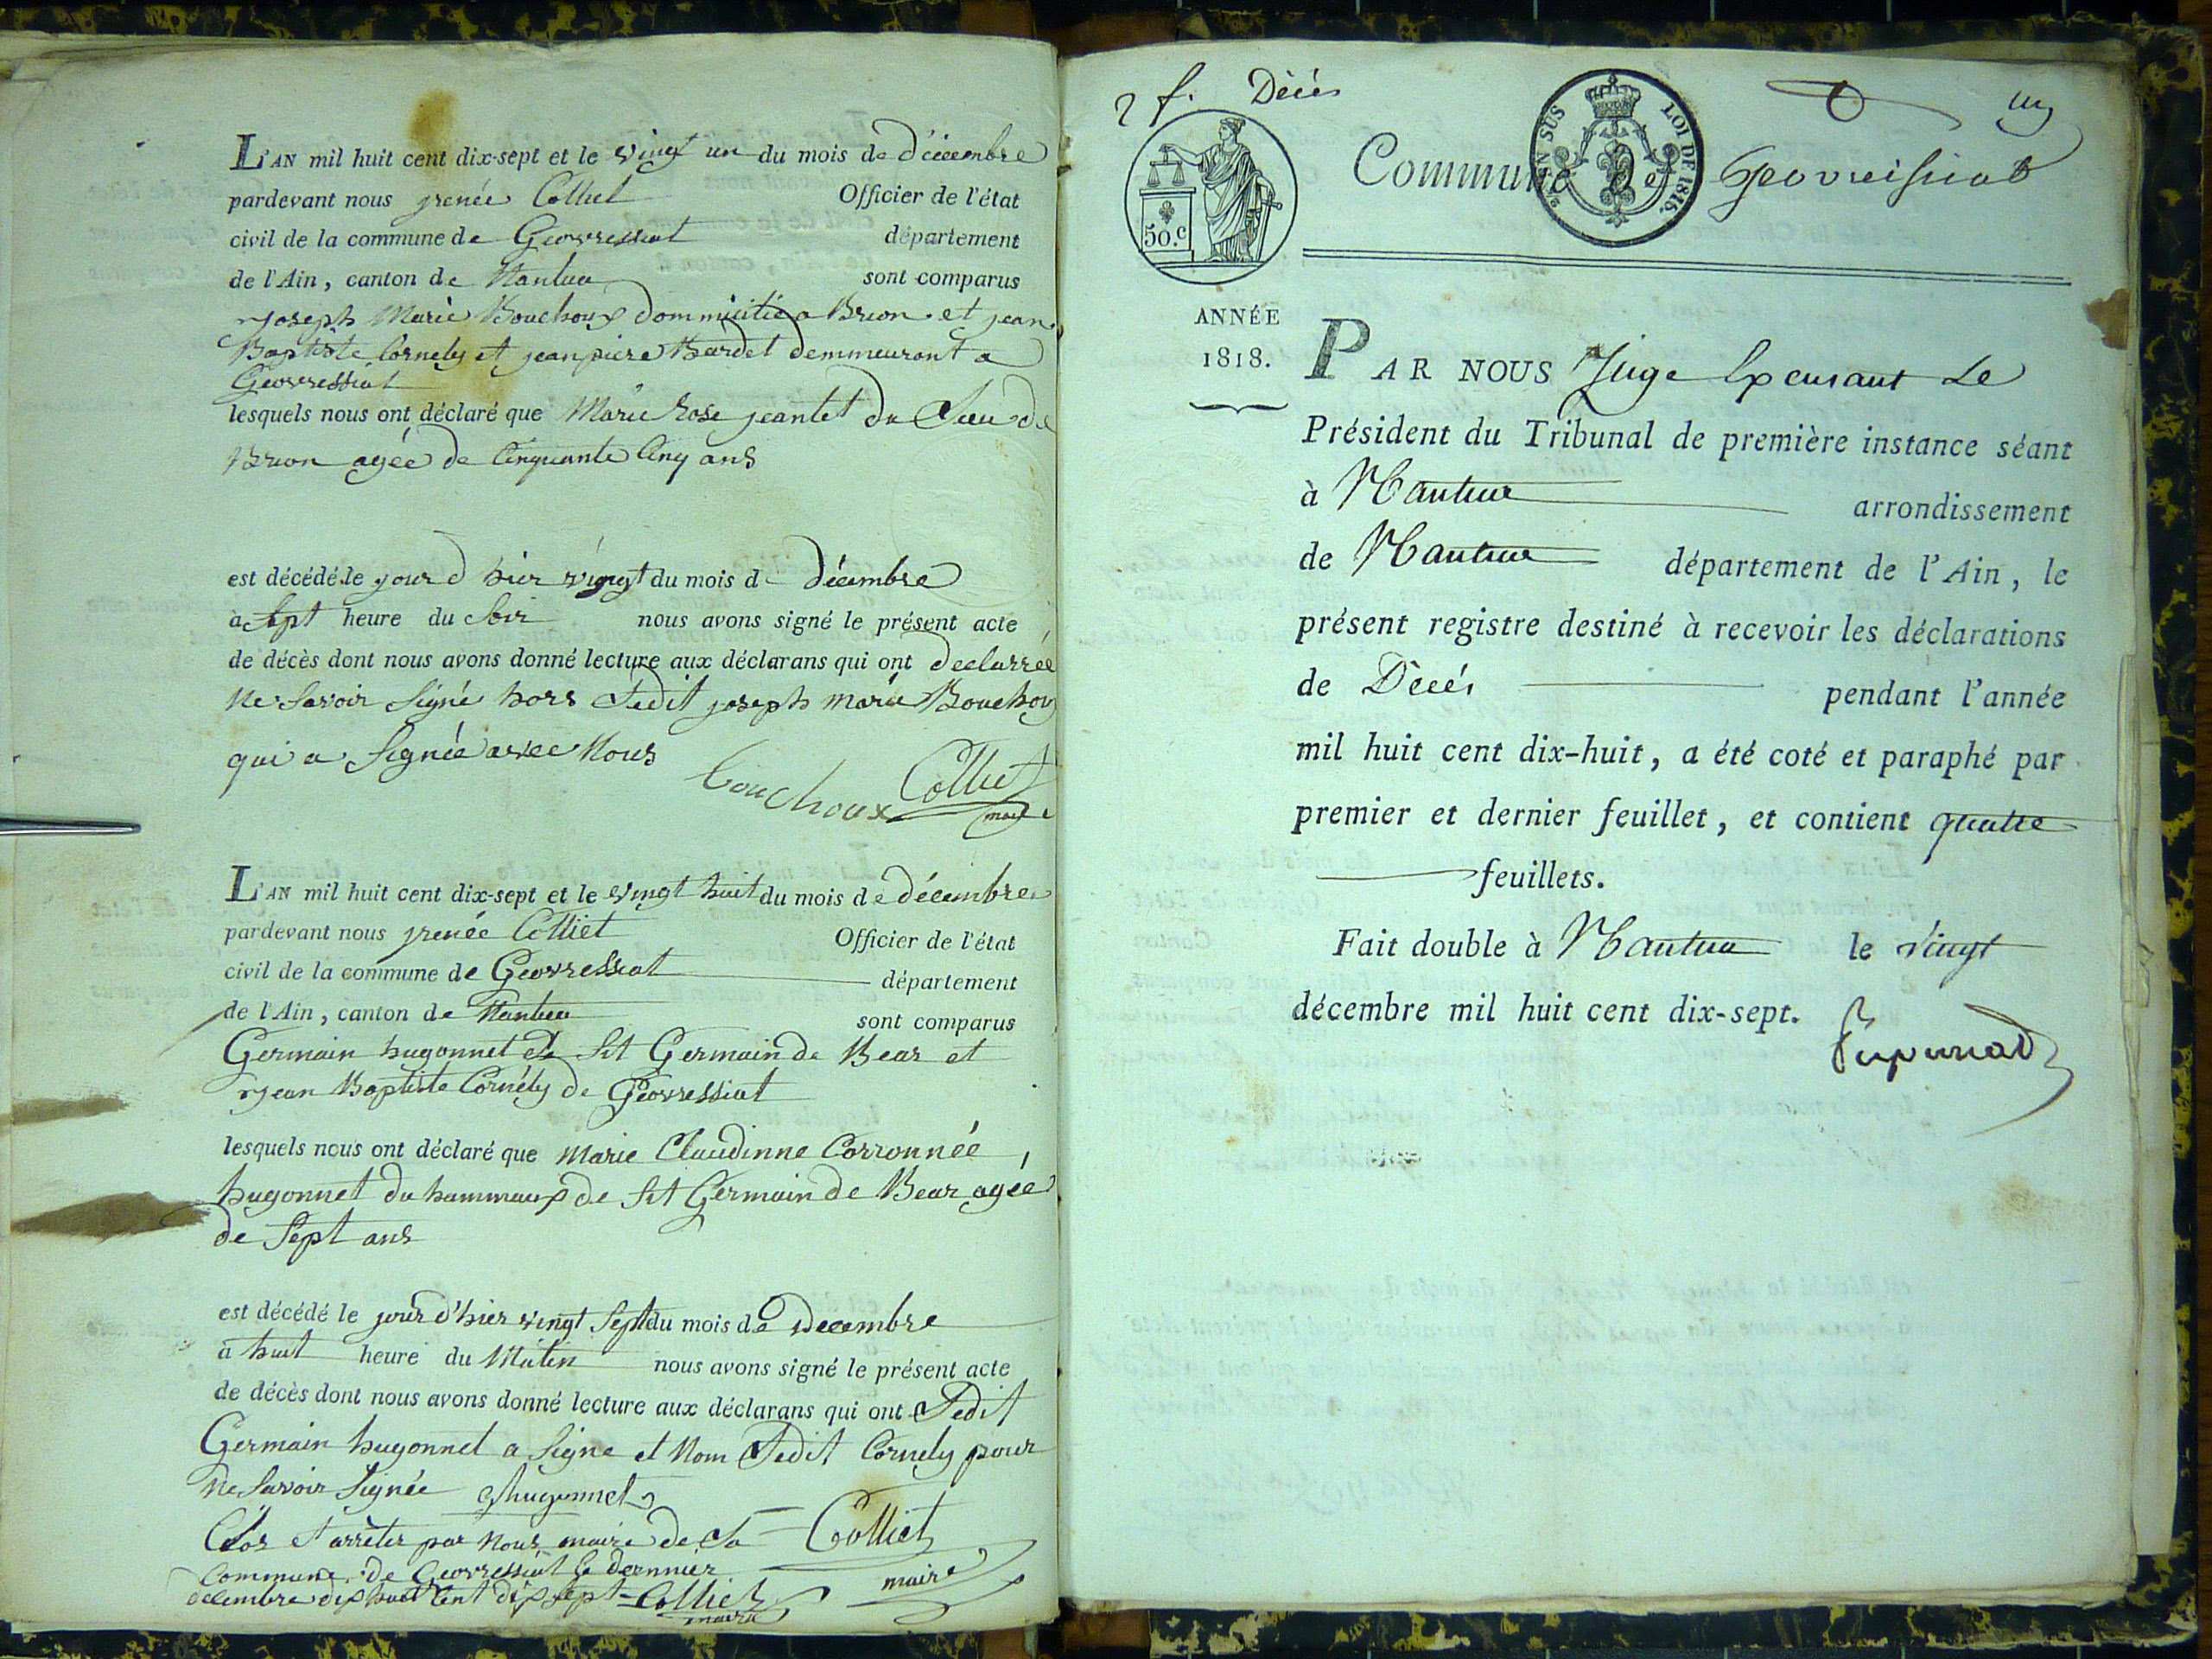 L'AN mil huit cent dix-sept et le vingt un du mois de décembre
pardevant nous grenée Colliet Officier de l'état
civil de la commune de Geovressiat département
de l'Ain, canton de Nantua sont comparus
joseph Marie Bouchoux dommicitié a Brion et jean
Baptiste Cornely et jean piere Hardet demmeuront a
Geovressiat
lesquels nous ont déclaré que Marie Rose jeantet du Lieu de
Brion agée de Cinquante Cinq ans
est décédé le jour d hier vingt du mois d décembre
à Sept heure du Soir nous avons signé le présent acte
de décès dont nous avons donné lecture aux déclarans qui ont declarrée
Ne Savoir Signé hors Ledit joseph marie Bouchoux
qui a Signée avec Nous
bouchoux Colliet
maire
L'AN mil huit cent dix-sept et le vingt huit du mois de décembre
pardevant nous grenée Colliet Officier de l'état
civil de la commune de Geovressiat département
de l'Ain, canton de Nantua sont comparus
Germain hugonnet de St Germain de Bear et
jean Baptiste Cornély de Géovressiat
lesquels nous ont déclaré que Marie Claudinne Corronnée
hugonnet du hammaux de St Germain de Bear agée
de Sept ans
est décédé le jour d'hier vingt Sept du mois de Decembre
à huit heure du Matin nous avons signé le présent acte
de décès dont nous avons donné lecture aux déclarans qui ont Ledit
Germain hugonnet a Signe et Nom Ledit Cornely pour
Ne Savoir Signée hugonnet
Clos et arrêter par Nous maire de La Colliet
Commune de Geovressiat Le dernnier maire
décembre dix huit Cent dix sept = Colliet
maire
2 f. Décés un
50.c
EN SUS LOI DE 1816.
Commune de Geovreissiat
ANNÉE
1818.
PAR NOUS Juge Le
Président du Tribunal de première instance séant
à Nantua arrondissement
de Nantua département de l'Ain, le
présent registre destiné à recevoir les déclarations
de Décés pendant l'année
mil huit cent dix-huit, a été coté et paraphé par
premier et dernier feuillet, et contient quatre
feuillets.
Fait double à Nantua le vingt
décembre mil huit cent dix-sept.